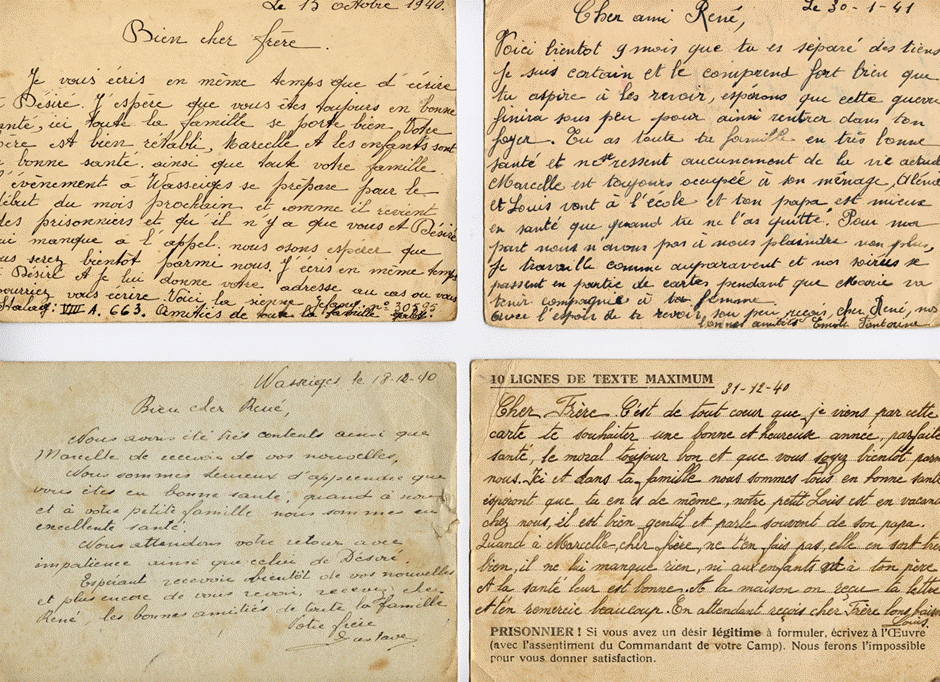 Le 15 octobre 1940.
Bien cher frère.
Je vous écris en même temps que d'écrire
à Désiré. J'espère que vous êtes toujours en bonne
santé, ici toute la famille se porte bien. Votre
père est bien rétabli, Marcelle et les enfants sont
bonne santé. ainsi que toute votre famille
L'évènement à Wasseiges se prépare pour le
début du mois prochain et comme il revient
des prisonniers et qu'il n'y a que vous et Désiré
qui manque à l'appel. nous osons espérer que
vous serez bientôt parmi nous. J'écris en même temps
Désiré et je lui donne votre adresse au cas ou vous
pourriez vous écrire. Voici la sienne
Stalag: VIII A. 663. Amitiés de toute la famille
Le 30-1-41
Cher ami René,
Voici bientôt 9 mois que tu es séparé des tiens
Je suis certain et le comprend fort bien que
tu aspire à les revoir, espérons que cette guerre
finira sous peu pour ainsi rentrer dans ton
foyer. Tu as toute ta famille en très bonne
santé et ne ressent aucunement de la vie actuel
Marcelle est toujours occupée à son ménage,
et Louis vont à l'école et ton papa est mieux
en santé que quand tu ne l'as quitté. Pour ma
part nous n'avons pas à nous plaindre non plus,
Je travaille comme auparavent et nos soirées se
passent en partie de cartes pendant que Marie va
tenir compagnie à ta femme.
Avec l'espoir de te revoir sou peu reçois, cher René, nos
bonnes amitiés
Wasseiges le 18-12-40
Bien cher René,
Nous avons été très contents ainsi que
Marcelle de recevoir de vos nouvelles,
Nous sommes heureux d'apprendre que
vous êtes en bonne santé, quand à nous
et à votre petite famille nous sommes en
excellente santé.
Nous attendons votre retour avec
impatience ainsi que celui de Désiré.
Espérant recevoir bientôt de vos nouvelles
et plus encore de vous revoir, recevez, cher
René, les bonnes amitiés de toute la famille
Votre frère
Gustave
10 LIGNES DE TEXTE MAXIMUM
31-12-40
Cher Frère. C'est de tout cœur que je viens par cette
carte te souhaiter une bonne et heureuse année, parfaite
santé, le moral toujour bon et que vous soyez bientôt parmi
nous. Ici et dans la famille nous sommes tous en bonne santé
espèront que tu en es de même, notre petit Louis est en vacance
chez nous, il est bien gentil et parle souvent de son papa.
Quand à Marcelle, cher frère, ne t'en fais pas, elle en sort très
bien, il ne lui manque rien, ni aux enfants ni à ton père
et la santé leur est bonne. A la maison on reçu ta lettre
et t'en remercie beaucoup. En attendant reçois cher Frère bons baisers
Louis.
PRISONNIER ! Si vous avez un désir légitime à formuler, écrivez à l'Œuvre
(avec l'assentiment du Commandant de votre Camp). Nous ferons l'impossible
pour vous donner satisfaction.